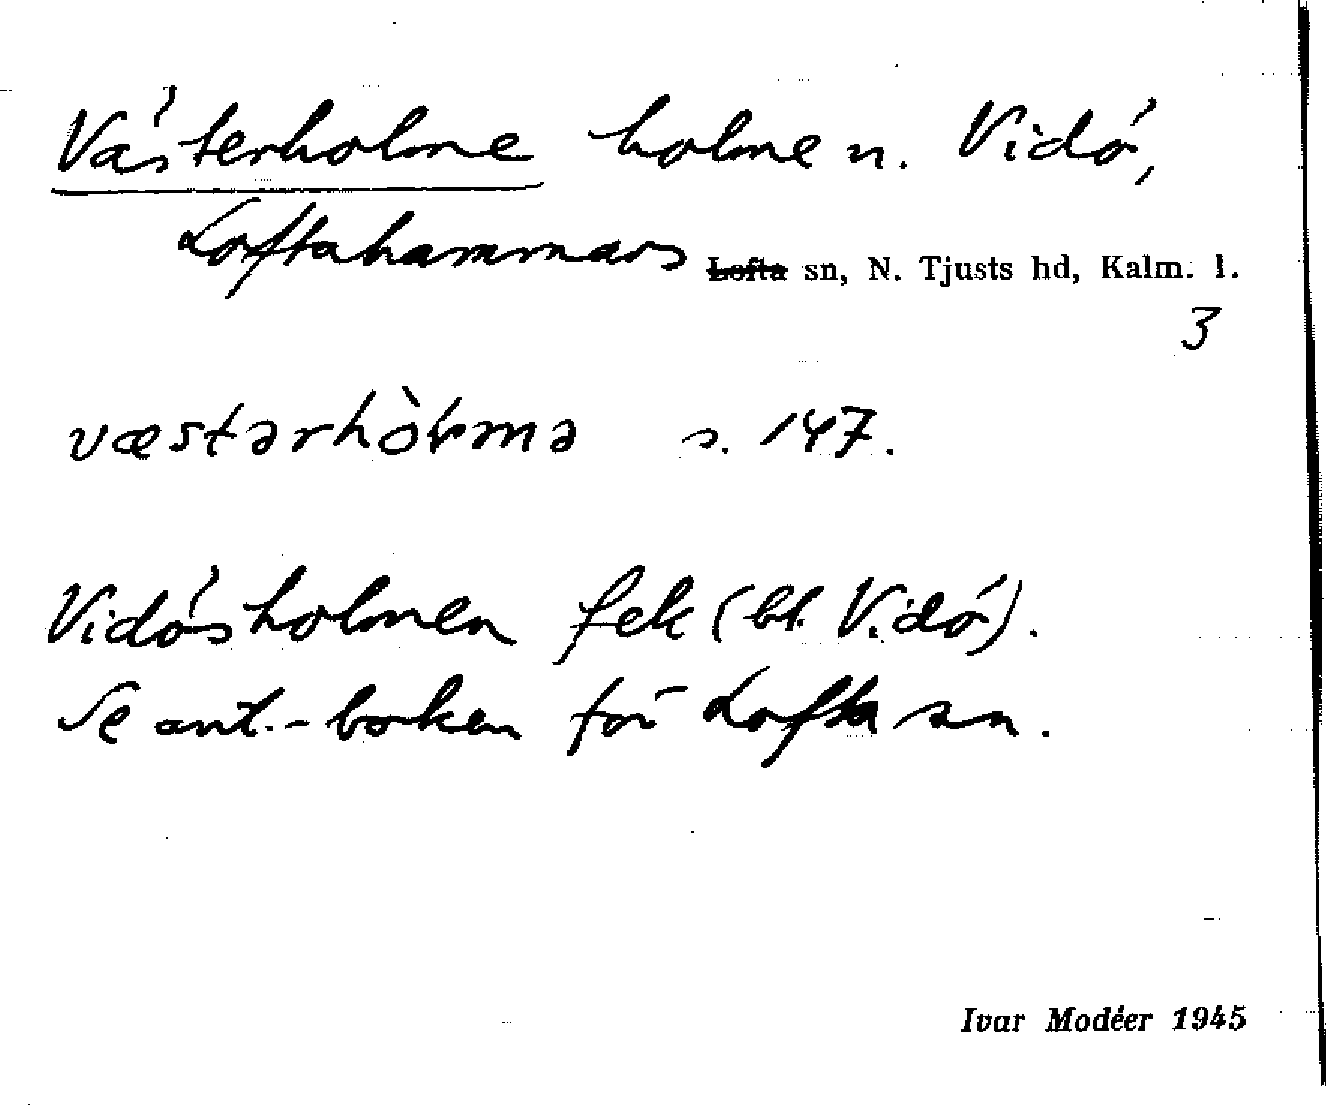 Västerholme holme n. Vidö,
Loftahammars Lofta sn, N. Tjusts hd, Kalm. l.
3
væstərhòłmə s. 147.
Vidösholmen fek (bl. Vidö).
Se ant.-boken för Lofta sn.
Ivar Modéer 1945